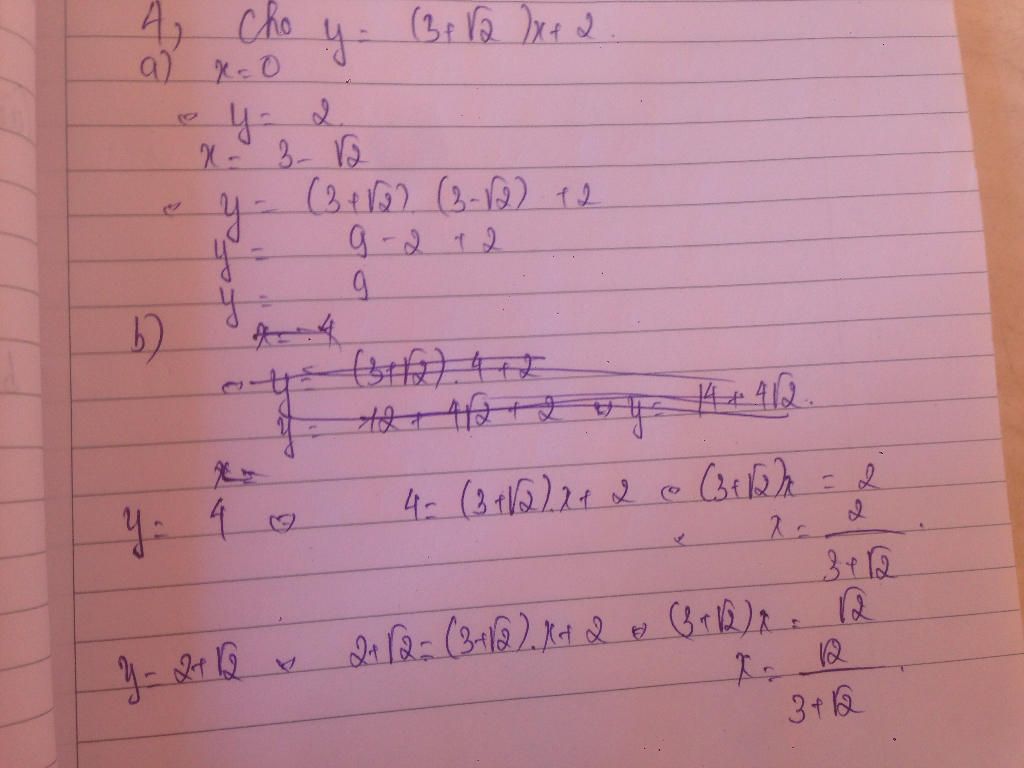 4, Cho y = (3+√2)x+2.
a) x=0
⇔ y = 2.
x = 3-√2
⇔ y = (3+√2).(3-√2) +2
y = 9-2+2
y = 9
b) x = 4
⇔ y = (3+√2).4+2
y = 12 + 4√2 + 2 ⇔ y = 14+4√2.
x =
y = 4 ⇔ 4 = (3+√2).x+2 ⇔ (3+√2)x = 2
x = 2/(3+√2).
y = 2+√2 ⇔ 2+√2 = (3+√2).x+2 ⇔ (3+√2)x = √2
x = √2/(3+√2).